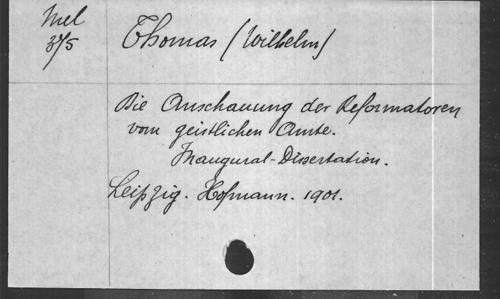 Mel
375
Thomas (Wilhelm)
Die Anschauung der Reformatoren
vom geistlichen Amte.
Inaugural-Dissertation.
Leipzig. Hofmann. 1901.